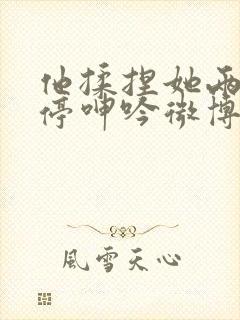 他揉捏她两
停呻吟微博
風雪天心